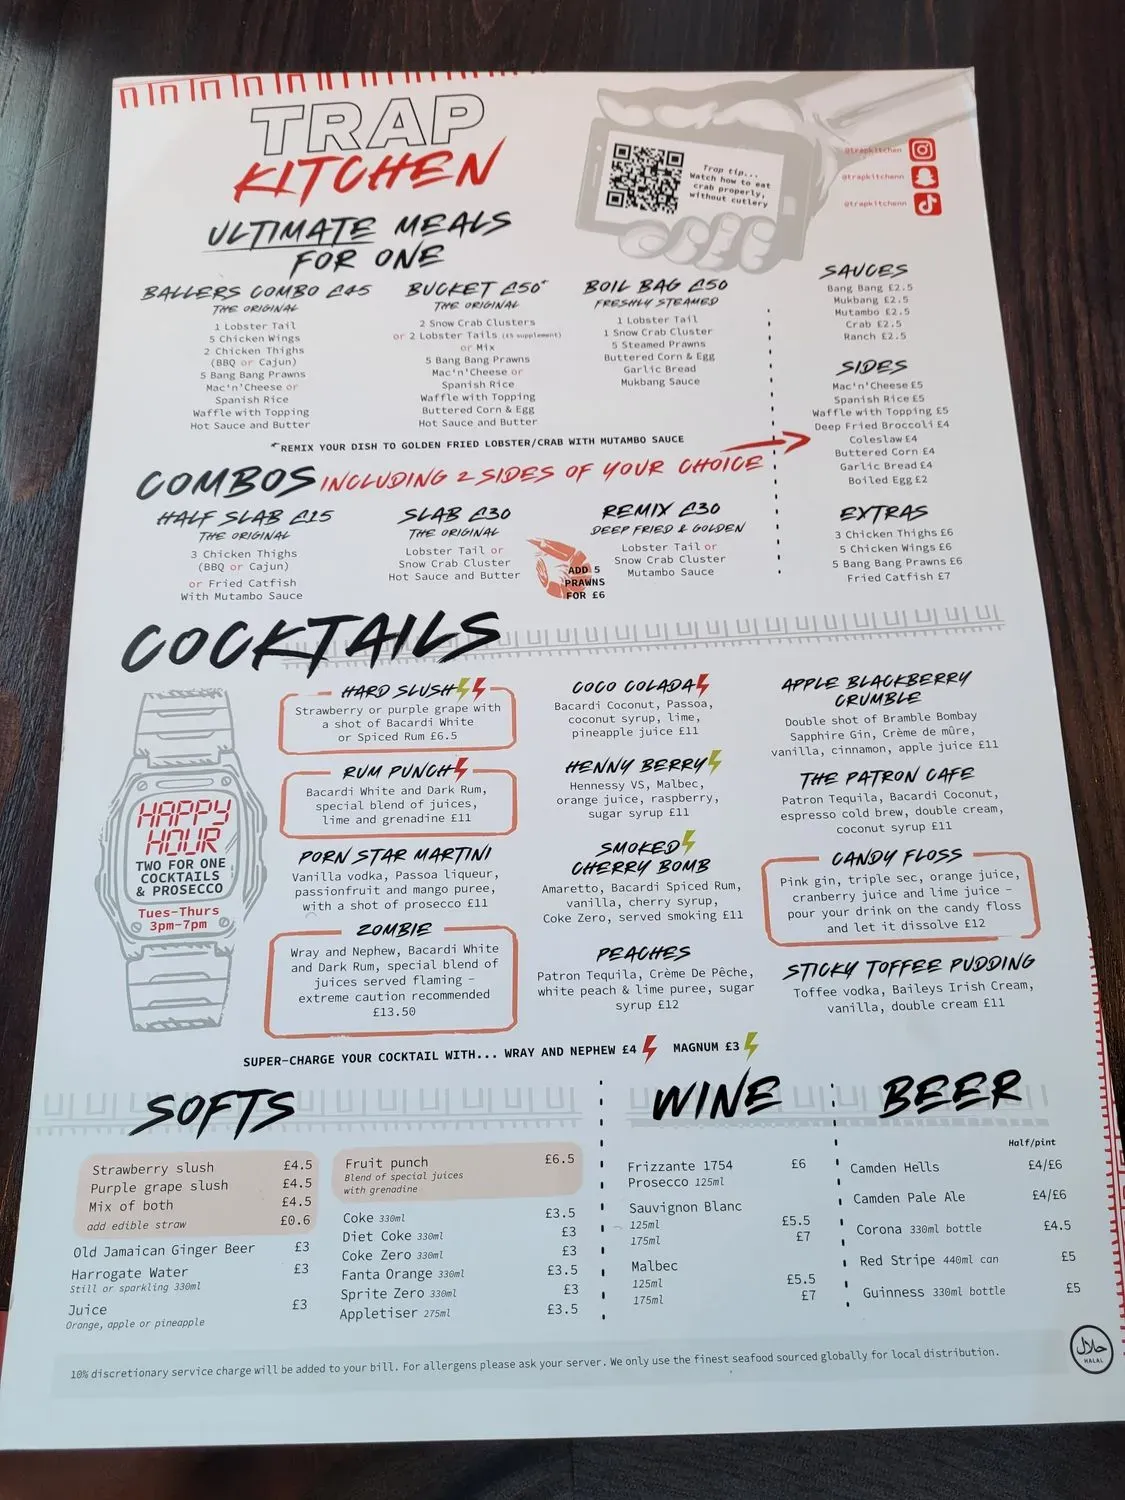 TRAP
KITCHEN
Trap tip...
Watch how to eat
crab properly,
without cutlery
@trapkitchen
@trapkitchenn
@trapkitchenn
ULTIMATE MEALS
FOR ONE
BALLERS COMBO £45
THE ORIGINAL
1 Lobster Tail
5 Chicken Wings
2 Chicken Thighs
(BBQ or Cajun)
5 Bang Bang Prawns
Mac'n'Cheese or
Spanish Rice
Waffle with Topping
Hot Sauce and Butter
BUCKET £50*
THE ORIGINAL
2 Snow Crab Clusters
or 2 Lobster Tails (£5 supplement)
or Mix
5 Bang Bang Prawns
Mac'n'Cheese or
Spanish Rice
Waffle with Topping
Buttered Corn & Egg
Hot Sauce and Butter
BOIL BAG £50
FRESHLY STEAMED
1 Lobster Tail
1 Snow Crab Cluster
5 Steamed Prawns
Buttered Corn & Egg
Garlic Bread
Mukbang Sauce
*REMIX YOUR DISH TO GOLDEN FRIED LOBSTER/CRAB WITH MUTAMBO SAUCE
SAUCES
Bang Bang £2.5
Mukbang £2.5
Mutambo £2.5
Crab £2.5
Ranch £2.5
SIDES
Mac'n'Cheese £5
Spanish Rice £5
Waffle with Topping £5
Deep Fried Broccoli £4
Coleslaw £4
Buttered Corn £4
Garlic Bread £4
Boiled Egg £2
EXTRAS
3 Chicken Thighs £6
5 Chicken Wings £6
5 Bang Bang Prawns £6
Fried Catfish £7
COMBOS INCLUDING 2 SIDES OF YOUR CHOICE
HALF SLAB £15
THE ORIGINAL
3 Chicken Thighs
(BBQ or Cajun)
or Fried Catfish
With Mutambo Sauce
SLAB £30
THE ORIGINAL
Lobster Tail or
Snow Crab Cluster
Hot Sauce and Butter
ADD 5
PRAWNS
FOR £6
REMIX £30
DEEP FRIED & GOLDEN
Lobster Tail or
Snow Crab Cluster
Mutambo Sauce
COCKTAILS
HAPPY
HOUR
TWO FOR ONE
COCKTAILS
& PROSECCO
Tues-Thurs
3pm-7pm
HARD SLUSH
Strawberry or purple grape with
a shot of Bacardi White
or Spiced Rum £6.5
RUM PUNCH
Bacardi White and Dark Rum,
special blend of juices,
lime and grenadine £11
PORN STAR MARTINI
Vanilla vodka, Passoa liqueur,
passionfruit and mango puree,
with a shot of prosecco £11
ZOMBIE
Wray and Nephew, Bacardi White
and Dark Rum, special blend of
juices served flaming –
extreme caution recommended
£13.50
COCO COLADA
Bacardi Coconut, Passoa,
coconut syrup, lime,
pineapple juice £11
HENNY BERRY
Hennessy VS, Malbec,
orange juice, raspberry,
sugar syrup £11
SMOKED
CHERRY BOMB
Amaretto, Bacardi Spiced Rum,
vanilla, cherry syrup,
Coke Zero, served smoking £11
PEACHES
Patron Tequila, Crème De Pêche,
white peach & lime puree, sugar
syrup £12
APPLE BLACKBERRY
CRUMBLE
Double shot of Bramble Bombay
Sapphire Gin, Crème de mûre,
vanilla, cinnamon, apple juice £11
THE PATRON CAFE
Patron Tequila, Bacardi Coconut,
espresso cold brew, double cream,
coconut syrup £11
CANDY FLOSS
Pink gin, triple sec, orange juice,
cranberry juice and lime juice –
pour your drink on the candy floss
and let it dissolve £12
STICKY TOFFEE PUDDING
Toffee vodka, Baileys Irish Cream,
vanilla, double cream £11
SUPER-CHARGE YOUR COCKTAIL WITH... WRAY AND NEPHEW £4 MAGNUM £3
SOFTS
Strawberry slush £4.5
Purple grape slush £4.5
Mix of both £4.5
add edible straw £0.6
Old Jamaican Ginger Beer £3
Harrogate Water £3
Still or sparkling 330ml
Juice £3
Orange, apple or pineapple
Fruit punch £6.5
Blend of special juices
with grenadine
Coke 330ml £3.5
Diet Coke 330ml £3
Coke Zero 330ml £3
Fanta Orange 330ml £3.5
Sprite Zero 330ml £3
Appletiser 275ml £3.5
WINE
Frizzante 1754 £6
Prosecco 125ml
Sauvignon Blanc
125ml £5.5
175ml £7
Malbec
125ml £5.5
175ml £7
BEER
Half/pint
Camden Hells £4/£6
Camden Pale Ale £4/£6
Corona 330ml bottle £4.5
Red Stripe 440ml can £5
Guinness 330ml bottle £5
10% discretionary service charge will be added to your bill. For allergens please ask your server. We only use the finest seafood sourced globally for local distribution.
حلال
HALAL